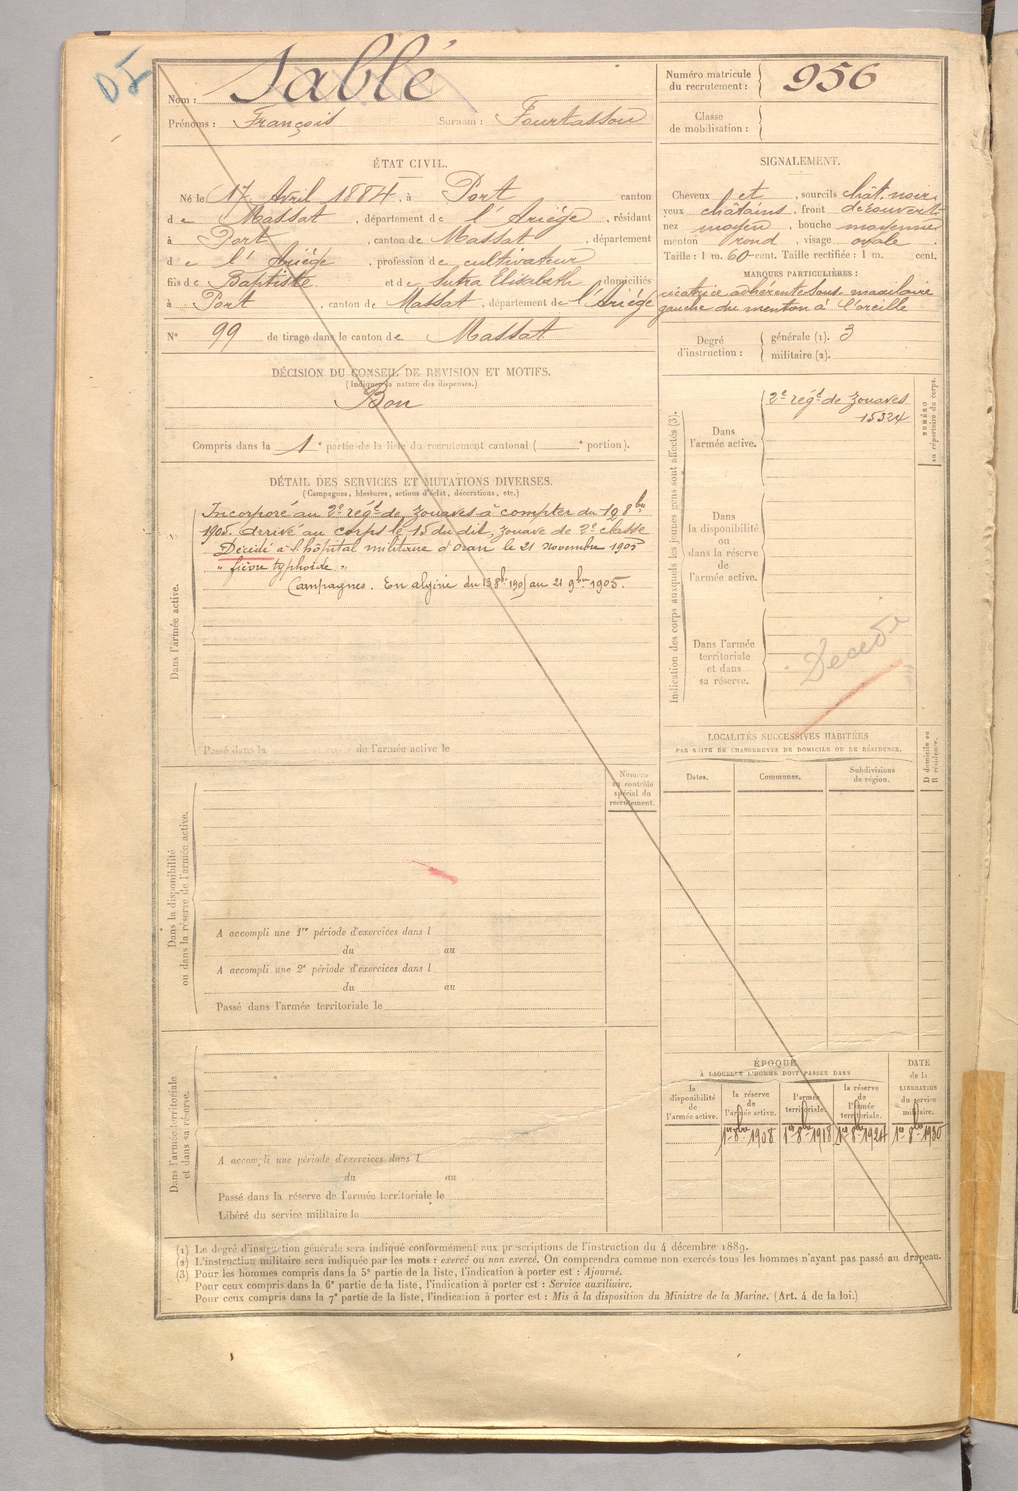 Sablé
Nom :
Prénoms : François Surnom : Fourtassou
Numéro matricule
du recrutement : 956
Classe
de mobilisation :
ÉTAT CIVIL.
Né le 17 Avril 1884, à Port canton
de Massat, département de l'Ariége, résidant
à Port, canton de Massat, département
de l'Ariége, profession de cultivateur
fils de Baptiste et de Sutra Elisabeth domiciliés
à Port, canton de Massat, département de l'Ariége
N° 99 de tirage dans le canton de Massat
SIGNALEMENT.
Cheveux et, sourcils chât. noir
yeux châtains, front découvert
nez moyen, bouche moyenne
menton rond, visage ovale
Taille : 1 m. 60 cent. Taille rectifiée : 1 m. cent.
MARQUES PARTICULIÈRES :
cicatrice adhérente sous maxilaire
gauche du menton à l'oreille
Degré
d'instruction :
générale (1). 3
militaire (2).
DÉCISION DU CONSEIL DE REVISION ET MOTIFS.
(Indiquer la nature des dispenses.)
Bon
Compris dans la 1e partie de la liste du recrutement cantonal ( e portion).
DÉTAIL DES SERVICES ET MUTATIONS DIVERSES.
(Campagnes, blessures, actions d'éclat, décorations, etc.)
Dans l'armée active.
Incorporé au 2e régt de zouaves à compter du 8bre
1905. arrivé au corps le 15 du dit, zouave de 2e classe
Décédé à l'hôpital militaire d'Oran le 21 novembre 1905
" fièvre typhoïde "
Campagnes. En algérie du au 21 9bre 1905.
Passé dans la de l'armée active le
Indication des corps auxquels les jeunes gens sont affectés (3).
Dans
l'armée active.
2e régt de zouaves
15324
NUMÉRO
au répertoire du corps.
Dans
la disponibilité
ou
dans la réserve
de
l'armée active.
Dans l'armée
territoriale
et dans
sa réserve.
Décédé
LOCALITÉS SUCCESSIVES HABITÉES
PAR SUITE DE CHANGEMENTS DE DOMICILE OU DE RÉSIDENCE.
Dates.
Communes.
Subdivisions
de région.
D domicile ou
R résidence.
Dans la disponibilité
ou dans la réserve de l'armée active.
Numéro
au contrôle
spécial du
recrutement.
A accompli une 1re période d'exercices dans l
du au
A accompli une 2e période d'exercices dans l
du au
Passé dans l'armée territoriale le
Dans l'armée territoriale
et dans sa réserve.
A accompli une période d'exercices dans l
du au
Passé dans la réserve de l'armée territoriale le
Libéré du service militaire le
ÉPOQUE
À LAQUELLE L'HOMME DOIT PASSER DANS
la
disponibilité
de
l'armée active.
la réserve
de
l'armée active.
l'armée
territoriale.
la réserve
de
l'armée
territoriale.
DATE
de la
LIBÉRATION
du service
militaire.
1er 8bre 1908 1er 8bre 1918 1er 8bre 1924 1er 8bre 1930
(1) Le degré d'instruction générale sera indiqué conformément aux prescriptions de l'instruction du 4 décembre 1889.
(2) L'instruction militaire sera indiquée par les mots : exercé ou non exercé. On comprendra comme non exercés tous les hommes n'ayant pas passé au drapeau.
(3) Pour les hommes compris dans la 5e partie de la liste, l'indication à porter est : Ajourné.
Pour ceux compris dans la 6e partie de la liste, l'indication à porter est : Service auxiliaire.
Pour ceux compris dans la 7e partie de la liste, l'indication à porter est : Mis à la disposition du Ministre de la Marine. (Art. 4 de la loi.)